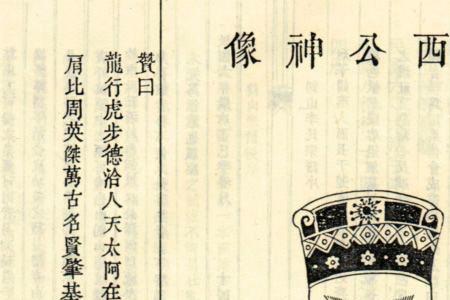 西公神像
贊曰
龍行虎步德洽人天太阿在
肩比周英傑萬古名賢肇基